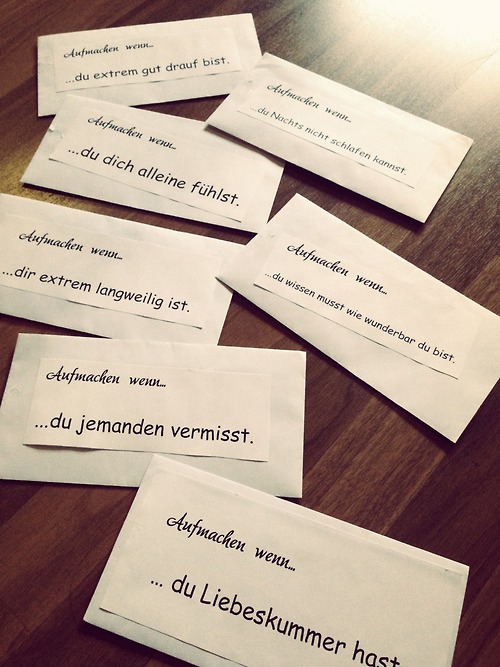 Aufmachen wenn...
...du extrem gut drauf bist.
Aufmachen wenn...
...du Nachts nicht schlafen kannst.
Aufmachen wenn...
...du dich alleine fühlst.
Aufmachen wenn...
...dir extrem langweilig ist.
Aufmachen wenn...
...du wissen musst wie wunderbar du bist.
Aufmachen wenn...
...du jemanden vermisst.
Aufmachen wenn...
... du Liebeskummer hast